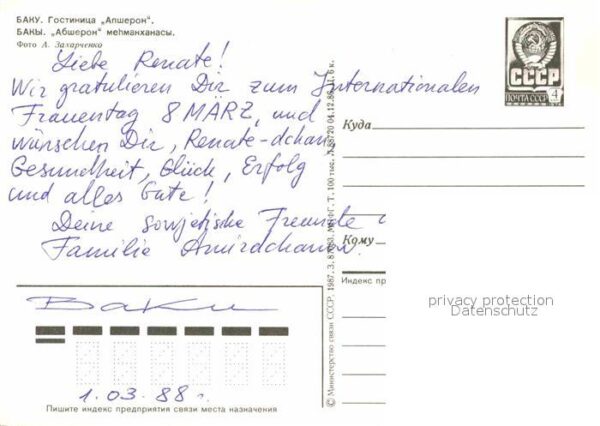 БАКУ. Гостиница „Апшерон".
БАКЫ. „Абшерон" меһманханасы.
Фото А. Захарченко
Liebe Renate!
Wir gratulieren Dir zum Internationalen
Frauentag 8 MÄRZ, und
wünschen Dir, Renate-dchan
Gesundheit, Glück, Erfolg
und alles Gute!
Deine sowjetische Freunde
Familie
Baku
1.03.88
Пишите индекс предприятия связи места назначения
© Министерство связи СССР. 1987. З. Т. 100 тыс. 04.12.86 Ц. 6 к.
СССР
ПОЧТА СССР 4
Куда
Кому
Индекс пр
privacy protection
Datenschutz